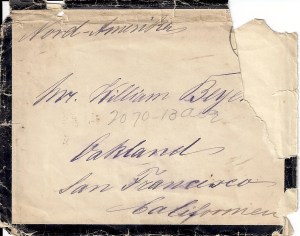 Nord-Amerika
Mr. William Beye
2070-
Oakland
San Francisco
Californien